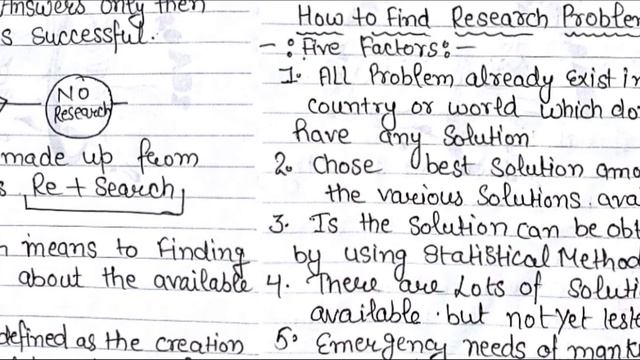 Answers only then
s successful.
NO
Research
made up from
Re + Search
means to Finding
about the available
defined as the creation
How to Find Research Problem
-: Five Factors:-
1. All Problem already Exist in
country or world which do
have any Solution
2. Chose best Solution amo
the various Solutions. ava
3. Is the Solution can be obt
by using Statistical Method
4. There are Lots of Soluti
available. but not yet teste
5. Emergency needs of mank